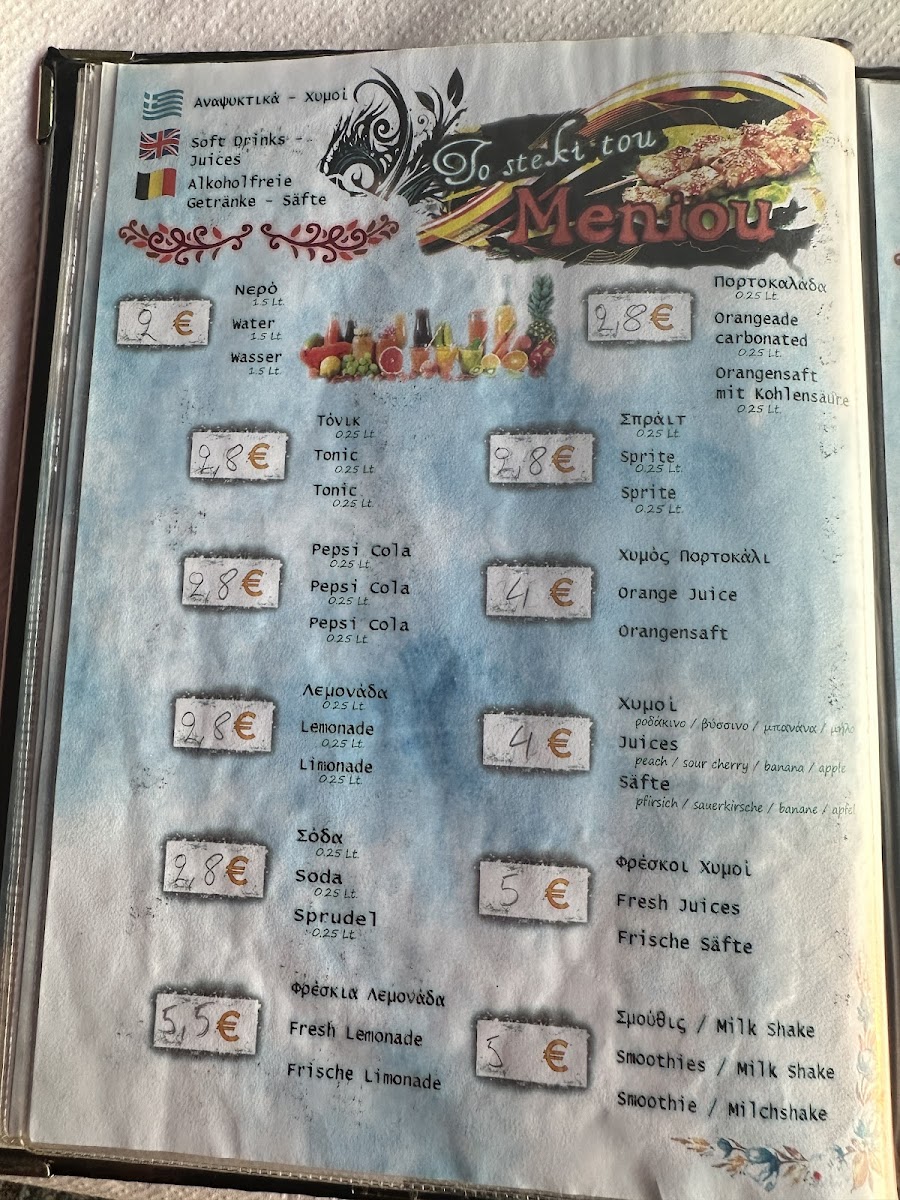 Αναψυκτικά - Χυμοί
Soft Drinks -
Juices
Alkoholfreie
Getränke - Säfte
To steki tou
Meniou
2 €
Νερό
1.5 Lt.
Water
1.5 Lt.
Wasser
1.5 Lt.
2,8 €
Πορτοκαλάδα
0.25 Lt.
Orangeade
carbonated
0.25 Lt.
Orangensaft
mit Kohlensäure
0.25 Lt.
2,8 €
Τόνικ
0.25 Lt.
Tonic
0.25 Lt.
Tonic
0.25 Lt.
2,8 €
Σπράιτ
0.25 Lt.
Sprite
0.25 Lt.
Sprite
0.25 Lt.
2,8 €
Pepsi Cola
0.25 Lt.
Pepsi Cola
0.25 Lt.
Pepsi Cola
0.25 Lt.
4 €
Χυμός Πορτοκάλι
Orange Juice
Orangensaft
2,8 €
Λεμονάδα
0.25 Lt.
Lemonade
0.25 Lt.
Limonade
0.25 Lt.
4 €
Χυμοί
ροδάκινο / βύσσινο / μπανάνα / μήλο
Juices
peach / sour cherry / banana / apple
Säfte
pfirsich / sauerkirsche / banane / apfel
2,8 €
Σόδα
0.25 Lt.
Soda
0.25 Lt.
Sprudel
0.25 Lt.
5 €
Φρέσκοι Χυμοί
Fresh Juices
Frische Säfte
5,5 €
Φρέσκια Λεμονάδα
Fresh Lemonade
Frische Limonade
5 €
Σμούθις / Milk Shake
Smoothies / Milk Shake
Smoothie / Milchshake